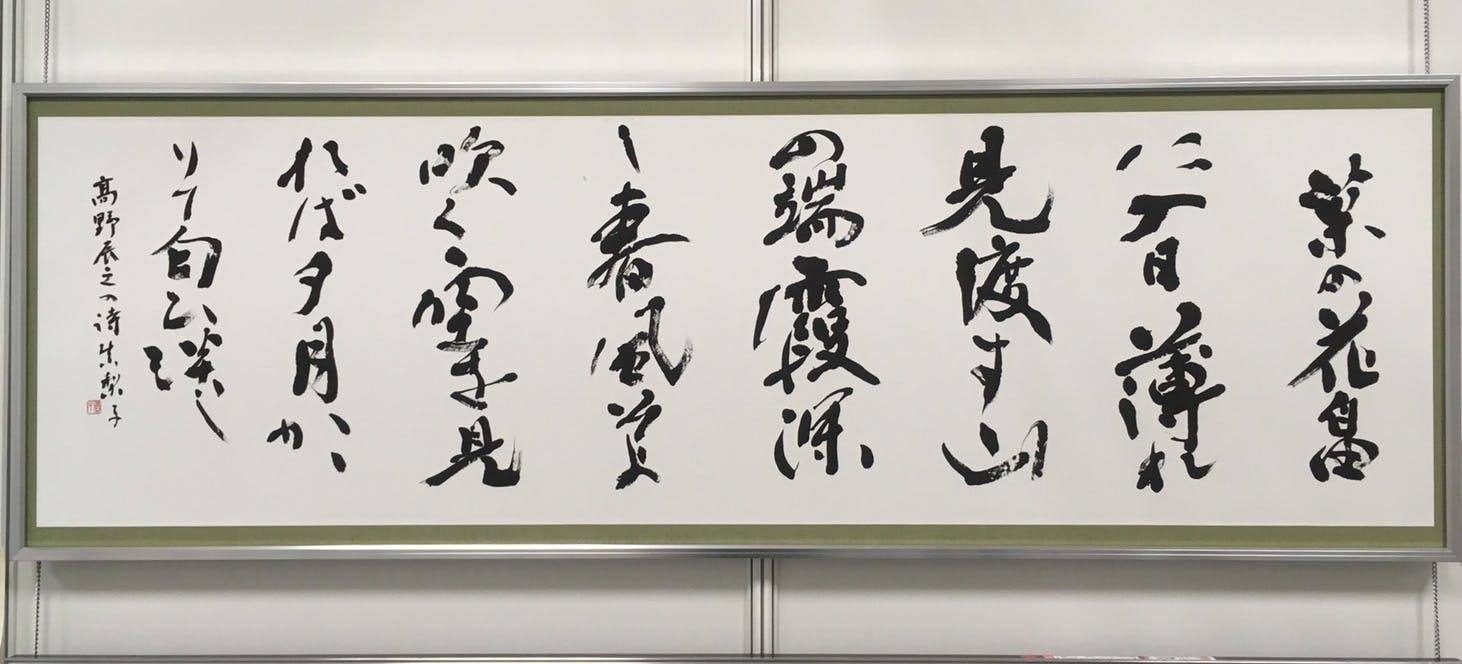 菜の花畠
に入日薄れ
見渡す山
の端霞深
し春風そよ
吹く空を見
れば夕月かゝ
りて匂ひ淡し
髙野辰之の詩